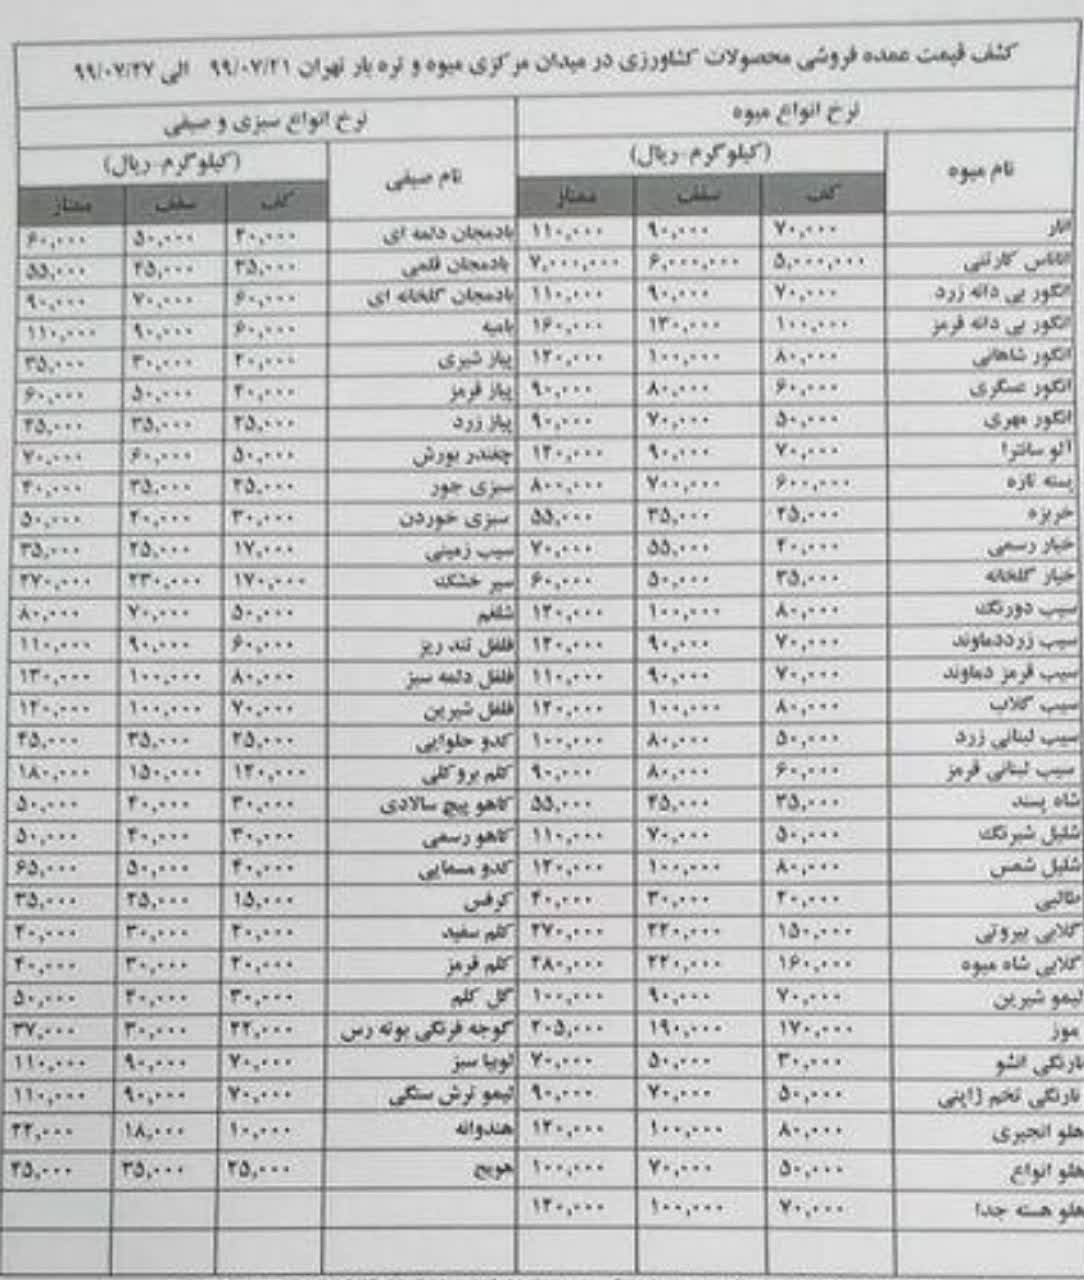 کشف قیمت عمده فروشی محصولات کشاورزی در میدان مرکزی میوه و تره بار تهران ۹۹/۰۷/۲۱ الی ۹۹/۰۷/۲۷
نرخ انواع میوه نرخ انواع سبزی و صیفی
نام میوه (کیلوگرم-ریال) نام صیفی (کیلوگرم-ریال)
کف سقف ممتاز کف سقف ممتاز
انار ۷۰,۰۰۰ ۹۰,۰۰۰ ۱۱۰,۰۰۰ بادمجان دلمه ای ۴۰,۰۰۰ ۵۰,۰۰۰ ۶۰,۰۰۰
آناناس کارتنی ۵,۰۰۰,۰۰۰ ۶,۰۰۰,۰۰۰ ۷,۰۰۰,۰۰۰ بادمجان قلمی ۳۵,۰۰۰ ۴۵,۰۰۰ ۵۵,۰۰۰
انگور بی دانه زرد ۷۰,۰۰۰ ۹۰,۰۰۰ ۱۱۰,۰۰۰ بادمجان گلخانه ای ۶۰,۰۰۰ ۷۰,۰۰۰ ۹۰,۰۰۰
انگور بی دانه قرمز ۱۰۰,۰۰۰ ۱۳۰,۰۰۰ ۱۶۰,۰۰۰ بامیه ۶۰,۰۰۰ ۹۰,۰۰۰ ۱۱۰,۰۰۰
انگور شاهانی ۸۰,۰۰۰ ۱۰۰,۰۰۰ ۱۲۰,۰۰۰ پیاز شیری ۲۰,۰۰۰ ۳۰,۰۰۰ ۳۵,۰۰۰
انگور عسگری ۶۰,۰۰۰ ۸۰,۰۰۰ ۹۰,۰۰۰ پیاز قرمز ۴۰,۰۰۰ ۵۰,۰۰۰ ۶۰,۰۰۰
انگور مهری ۵۰,۰۰۰ ۷۰,۰۰۰ ۹۰,۰۰۰ پیاز زرد ۲۵,۰۰۰ ۳۵,۰۰۰ ۴۵,۰۰۰
آلو سانترا ۷۰,۰۰۰ ۹۰,۰۰۰ ۱۲۰,۰۰۰ چغندر بورش ۵۰,۰۰۰ ۶۰,۰۰۰ ۷۰,۰۰۰
پسته تازه ۶۰۰,۰۰۰ ۷۰۰,۰۰۰ ۸۰۰,۰۰۰ سبزی جور ۲۵,۰۰۰ ۳۵,۰۰۰ ۴۰,۰۰۰
خربزه ۲۵,۰۰۰ ۳۵,۰۰۰ ۵۵,۰۰۰ سبزی خوردن ۳۰,۰۰۰ ۴۰,۰۰۰ ۵۰,۰۰۰
خیار رسمی ۴۰,۰۰۰ ۵۵,۰۰۰ ۷۰,۰۰۰ سیب زمینی ۱۷,۰۰۰ ۲۵,۰۰۰ ۳۵,۰۰۰
خیار گلخانه ۳۵,۰۰۰ ۵۰,۰۰۰ ۶۰,۰۰۰ سیر خشک ۱۷۰,۰۰۰ ۲۳۰,۰۰۰ ۲۷۰,۰۰۰
سیب دورنگ ۸۰,۰۰۰ ۱۰۰,۰۰۰ ۱۲۰,۰۰۰ شلغم ۵۰,۰۰۰ ۷۰,۰۰۰ ۸۰,۰۰۰
سیب زرددماوند ۷۰,۰۰۰ ۹۰,۰۰۰ ۱۲۰,۰۰۰ فلفل تند ریز ۶۰,۰۰۰ ۹۰,۰۰۰ ۱۱۰,۰۰۰
سیب قرمز دماوند ۷۰,۰۰۰ ۹۰,۰۰۰ ۱۱۰,۰۰۰ فلفل دلمه سبز ۸۰,۰۰۰ ۱۰۰,۰۰۰ ۱۳۰,۰۰۰
سیب گلاب ۸۰,۰۰۰ ۱۰۰,۰۰۰ ۱۲۰,۰۰۰ فلفل شیرین ۷۰,۰۰۰ ۱۰۰,۰۰۰ ۱۲۰,۰۰۰
سیب لبنانی زرد ۵۰,۰۰۰ ۸۰,۰۰۰ ۱۰۰,۰۰۰ کدو حلوایی ۲۵,۰۰۰ ۳۵,۰۰۰ ۴۵,۰۰۰
سیب لبنانی قرمز ۶۰,۰۰۰ ۸۰,۰۰۰ ۹۰,۰۰۰ کلم بروکلی ۱۲۰,۰۰۰ ۱۵۰,۰۰۰ ۱۸۰,۰۰۰
شاه پسند ۳۵,۰۰۰ ۴۵,۰۰۰ ۵۵,۰۰۰ کاهو پیچ سالادی ۳۰,۰۰۰ ۴۰,۰۰۰ ۵۰,۰۰۰
شلیل شبرنگ ۵۰,۰۰۰ ۷۰,۰۰۰ ۱۱۰,۰۰۰ کاهو رسمی ۳۰,۰۰۰ ۴۰,۰۰۰ ۵۰,۰۰۰
شلیل شمس ۸۰,۰۰۰ ۱۰۰,۰۰۰ ۱۲۰,۰۰۰ کدو مسمایی ۴۰,۰۰۰ ۵۰,۰۰۰ ۶۵,۰۰۰
طالبی ۲۰,۰۰۰ ۳۰,۰۰۰ ۴۰,۰۰۰ کرفس ۱۵,۰۰۰ ۲۵,۰۰۰ ۳۵,۰۰۰
گلابی بیروتی ۱۵۰,۰۰۰ ۲۲۰,۰۰۰ ۲۷۰,۰۰۰ کلم سفید ۲۰,۰۰۰ ۳۰,۰۰۰ ۴۰,۰۰۰
گلابی شاه میوه ۱۶۰,۰۰۰ ۲۲۰,۰۰۰ ۲۸۰,۰۰۰ کلم قرمز ۲۰,۰۰۰ ۳۰,۰۰۰ ۴۰,۰۰۰
لیمو شیرین ۷۰,۰۰۰ ۹۰,۰۰۰ ۱۰۰,۰۰۰ گل کلم ۳۰,۰۰۰ ۴۰,۰۰۰ ۵۰,۰۰۰
موز ۱۷۰,۰۰۰ ۱۹۰,۰۰۰ ۲۰۵,۰۰۰ گوجه فرنگی بوته رس ۲۲,۰۰۰ ۳۰,۰۰۰ ۳۷,۰۰۰
نارنگی انشو ۳۰,۰۰۰ ۵۰,۰۰۰ ۷۰,۰۰۰ لوبیا سبز ۷۰,۰۰۰ ۹۰,۰۰۰ ۱۱۰,۰۰۰
نارنگی تخم ژاپنی ۵۰,۰۰۰ ۷۰,۰۰۰ ۹۰,۰۰۰ لیمو ترش سنگی ۷۰,۰۰۰ ۹۰,۰۰۰ ۱۱۰,۰۰۰
هلو انجیری ۸۰,۰۰۰ ۱۰۰,۰۰۰ ۱۲۰,۰۰۰ هندوانه ۱۰,۰۰۰ ۱۸,۰۰۰ ۲۲,۰۰۰
هلو انواع ۵۰,۰۰۰ ۷۰,۰۰۰ ۱۰۰,۰۰۰ هویج ۲۵,۰۰۰ ۳۵,۰۰۰ ۴۵,۰۰۰
هلو هسته جدا ۷۰,۰۰۰ ۱۰۰,۰۰۰ ۱۲۰,۰۰۰